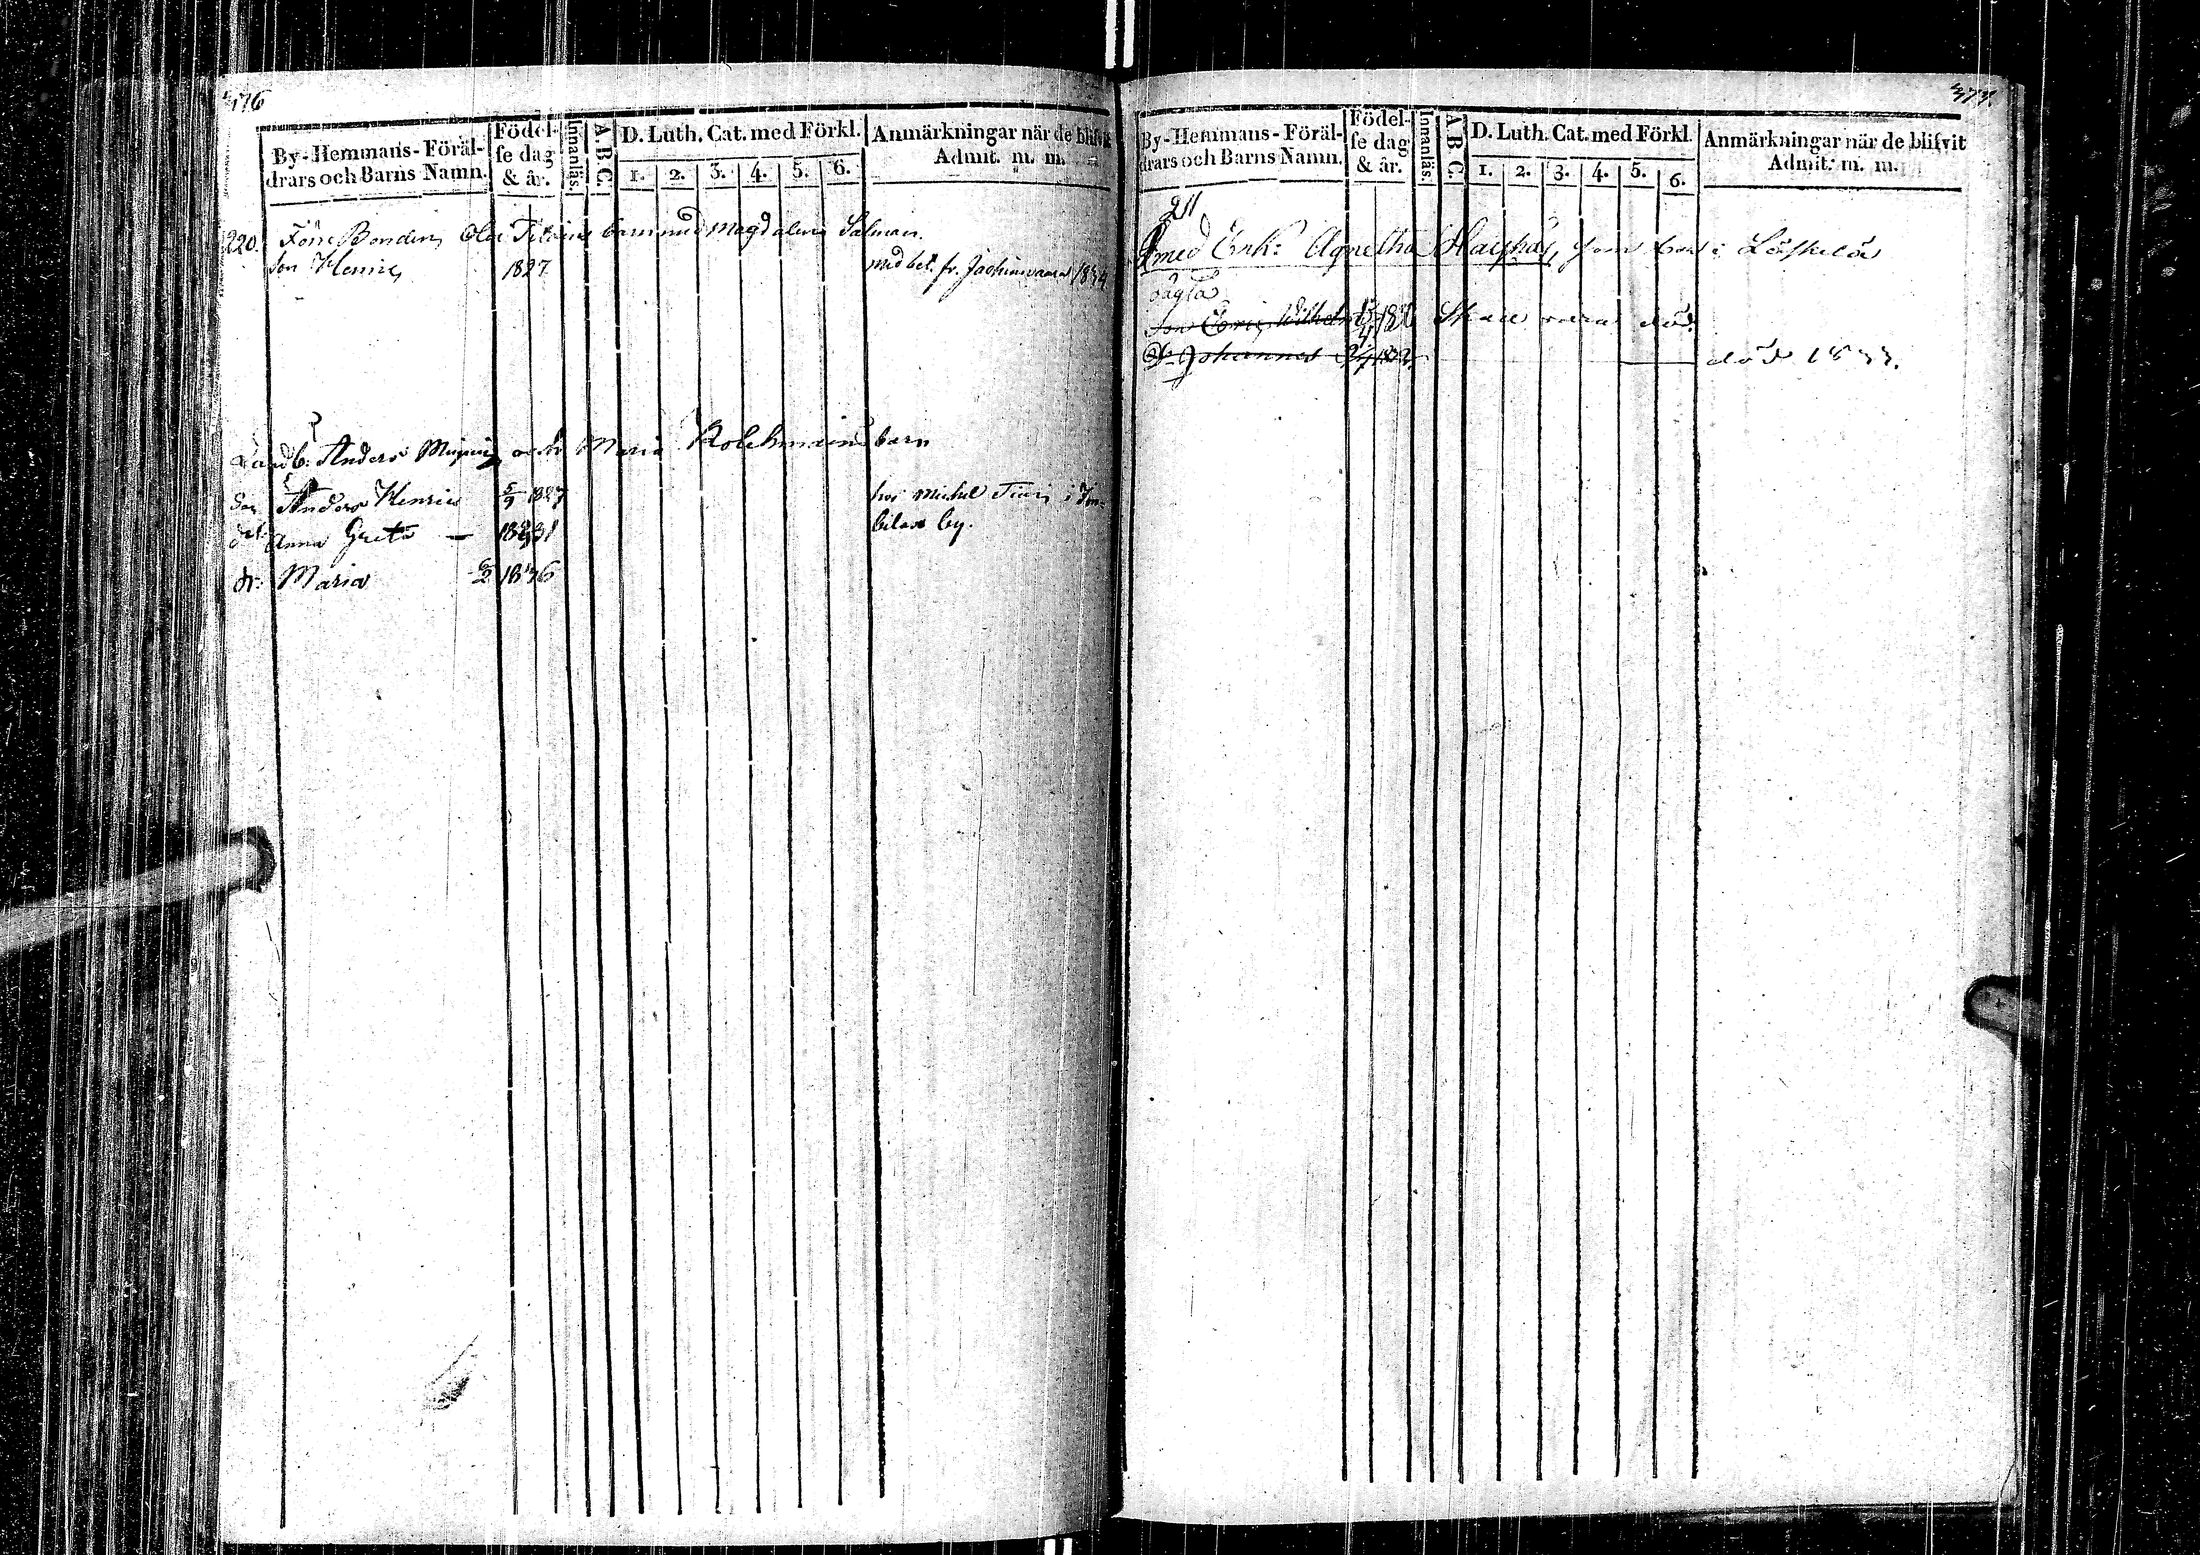 376
By-Hemmans-Föräl-
drars och Barns Namn.
Födel-
se dag
& år.
Innanläs.
A.B.C.
D. Luth. Cat. med Förkl.
1. 2. 3. 4. 5. 6.
Anmärkningar när de blifvit
Admit. m. m.
220. Förre Bonden Olof barn med Magdalena
Son Henric 1827 med bet. fr. Jachimvaara 1834
Landb: Anders och Maria Kolehmainens barn
Son Anders Henric 5/9 1827 hos Michel i Im-
dr Anna Greta — 1831 bilax by.
dr. Maria 6/2 1836
377.
By-Hemmans-Föräl-
drars och Barns Namn.
Födel-
se dag
& år.
Innanläs.
A.B.C.
D. Luth. Cat. med Förkl.
1. 2. 3. 4. 5. 6.
Anmärkningar när de blifvit
Admit. m. m.
211
med Enk: Agnetha som bor i Läskelä
oägta
son Eric Wilhelm Skall vara död.
Dr Johannes död 1833.